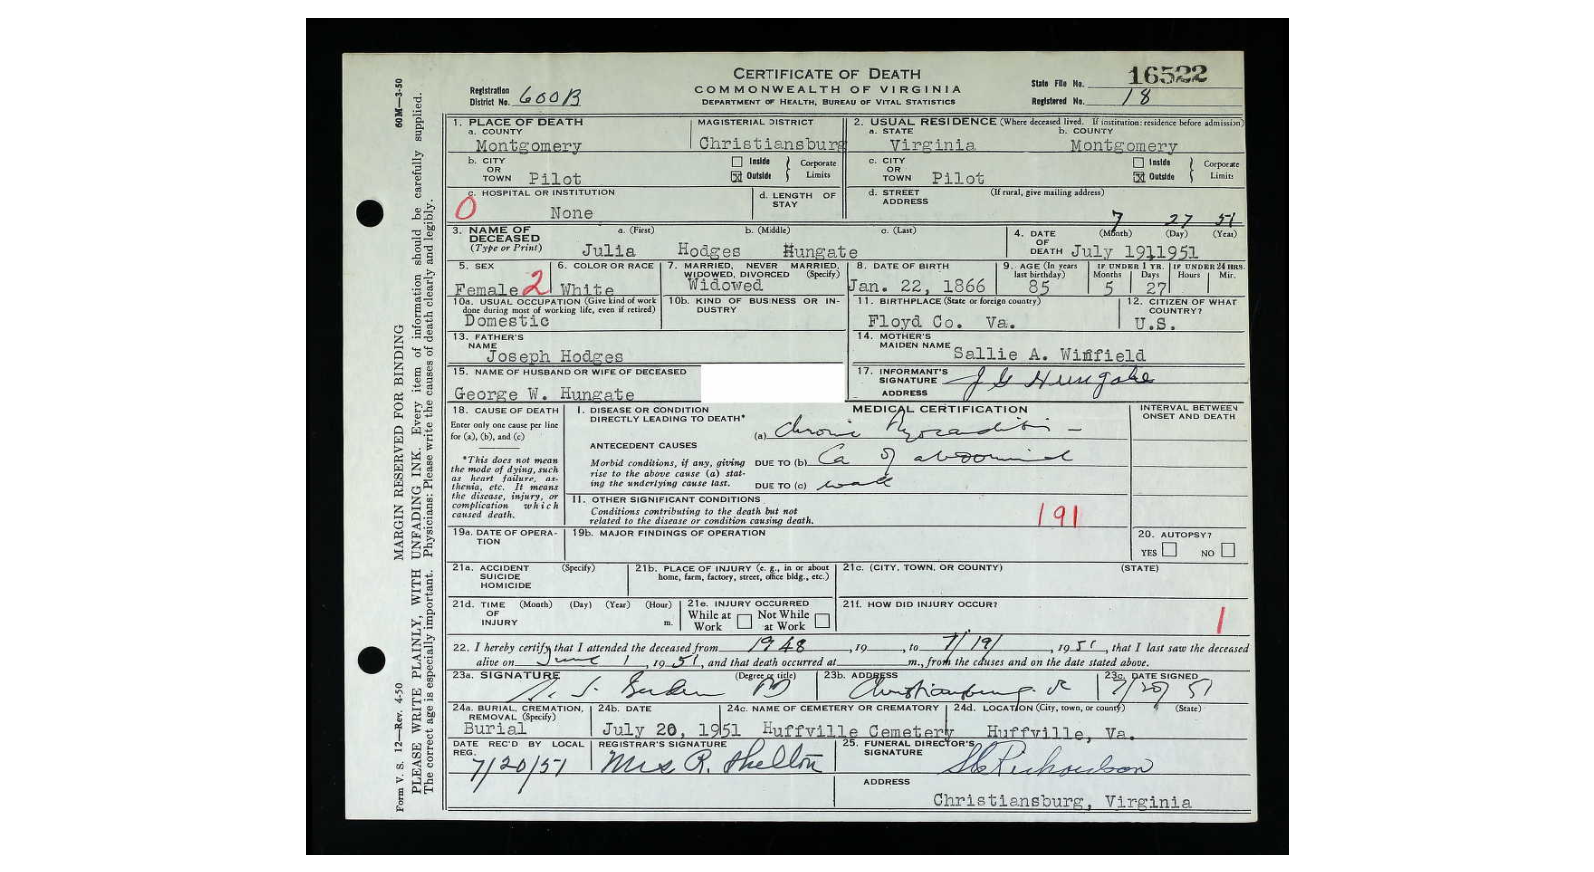 CERTIFICATE OF DEATH
COMMONWEALTH OF VIRGINIA
DEPARTMENT OF HEALTH, BUREAU OF VITAL STATISTICS
Registration District No. 600B
State File No. 16522
Registered No. 18
1. PLACE OF DEATH
a. COUNTY
Montgomery
MAGISTERIAL DISTRICT
Christiansburg
2. USUAL RESIDENCE (Where deceased lived. If institution: residence before admission)
a. STATE
Virginia
b. COUNTY
Montgomery
b. CITY OR TOWN Pilot
Inside
Outside
Corporate Limits
c. CITY OR TOWN Pilot
Inside
Outside
Corporate Limits
c. HOSPITAL OR INSTITUTION
0
None
d. LENGTH OF STAY
d. STREET ADDRESS
(If rural, give mailing address)
7 27 51
3. NAME OF DECEASED
(Type or Print)
a. (First)
b. (Middle)
c. (Last)
Julia Hodges Hungate
4. DATE OF DEATH
(Month) (Day) (Year)
July 19 1951
5. SEX
Female 2
6. COLOR OR RACE
White
7. MARRIED, NEVER MARRIED, WIDOWED, DIVORCED (Specify)
Widowed
8. DATE OF BIRTH
Jan. 22, 1866
9. AGE (In years last birthday)
85
IF UNDER 1 YR.
Months Days
5 27
IF UNDER 24 HRS.
Hours Mir.
10a. USUAL OCCUPATION (Give kind of work done during most of working life, even if retired)
Domestic
10b. KIND OF BUSINESS OR INDUSTRY
11. BIRTHPLACE (State or foreign country)
Floyd Co. Va.
12. CITIZEN OF WHAT COUNTRY?
U.S.
13. FATHER'S NAME
Joseph Hodges
14. MOTHER'S MAIDEN NAME Sallie A. Winfield
15. NAME OF HUSBAND OR WIFE OF DECEASED
George W. Hungate
17. INFORMANT'S SIGNATURE J G Hungate
ADDRESS
18. CAUSE OF DEATH
Enter only one cause per line for (a), (b), and (c)
*This does not mean the mode of dying, such as heart failure, asthenia, etc. It means the disease, injury, or complication which caused death.
MEDICAL CERTIFICATION
INTERVAL BETWEEN ONSET AND DEATH
I. DISEASE OR CONDITION DIRECTLY LEADING TO DEATH*
(a) Chronic Myocarditis -
ANTECEDENT CAUSES
Morbid conditions, if any, giving rise to the above cause (a) stating the underlying cause last.
DUE TO (b) Ca of abdominal
DUE TO (c) wall
II. OTHER SIGNIFICANT CONDITIONS
Conditions contributing to the death but not related to the disease or condition causing death.
191
19a. DATE OF OPERATION
19b. MAJOR FINDINGS OF OPERATION
20. AUTOPSY?
YES NO
21a. ACCIDENT SUICIDE HOMICIDE
(Specify)
21b. PLACE OF INJURY (e. g., in or about home, farm, factory, street, office bldg., etc.)
21c. (CITY, TOWN, OR COUNTY)
(STATE)
21d. TIME OF INJURY
(Month) (Day) (Year) (Hour)
m.
21e. INJURY OCCURRED
While at Work
Not While at Work
21f. HOW DID INJURY OCCUR?
1
22. I hereby certify that I attended the deceased from 1948, 19 , to 7/19/, 1951, that I last saw the deceased
alive on June 1, 1951, and that death occurred at m., from the causes and on the date stated above.
23a. SIGNATURE
(Degree or title)
23b. ADDRESS
Christiansburg
23c. DATE SIGNED
7/20/51
24a. BURIAL, CREMATION, REMOVAL (Specify)
Burial
24b. DATE
July 20, 1951
24c. NAME OF CEMETERY OR CREMATORY
Huffville Cemetery
24d. LOCATION (City, town, or county)
(State)
Huffville, Va.
DATE REC'D BY LOCAL REG.
7/20/51
REGISTRAR'S SIGNATURE
Mrs R. Shelton
25. FUNERAL DIRECTOR'S SIGNATURE
Richardson
ADDRESS
Christiansburg, Virginia
Form V. S. 12—Rev. 4-50
60M—3-50
MARGIN RESERVED FOR BINDING
PLEASE WRITE PLAINLY, WITH UNFADING INK. Every item of information should be carefully supplied.
The correct age is especially important. Physicians: Please write the causes of death clearly and legibly.